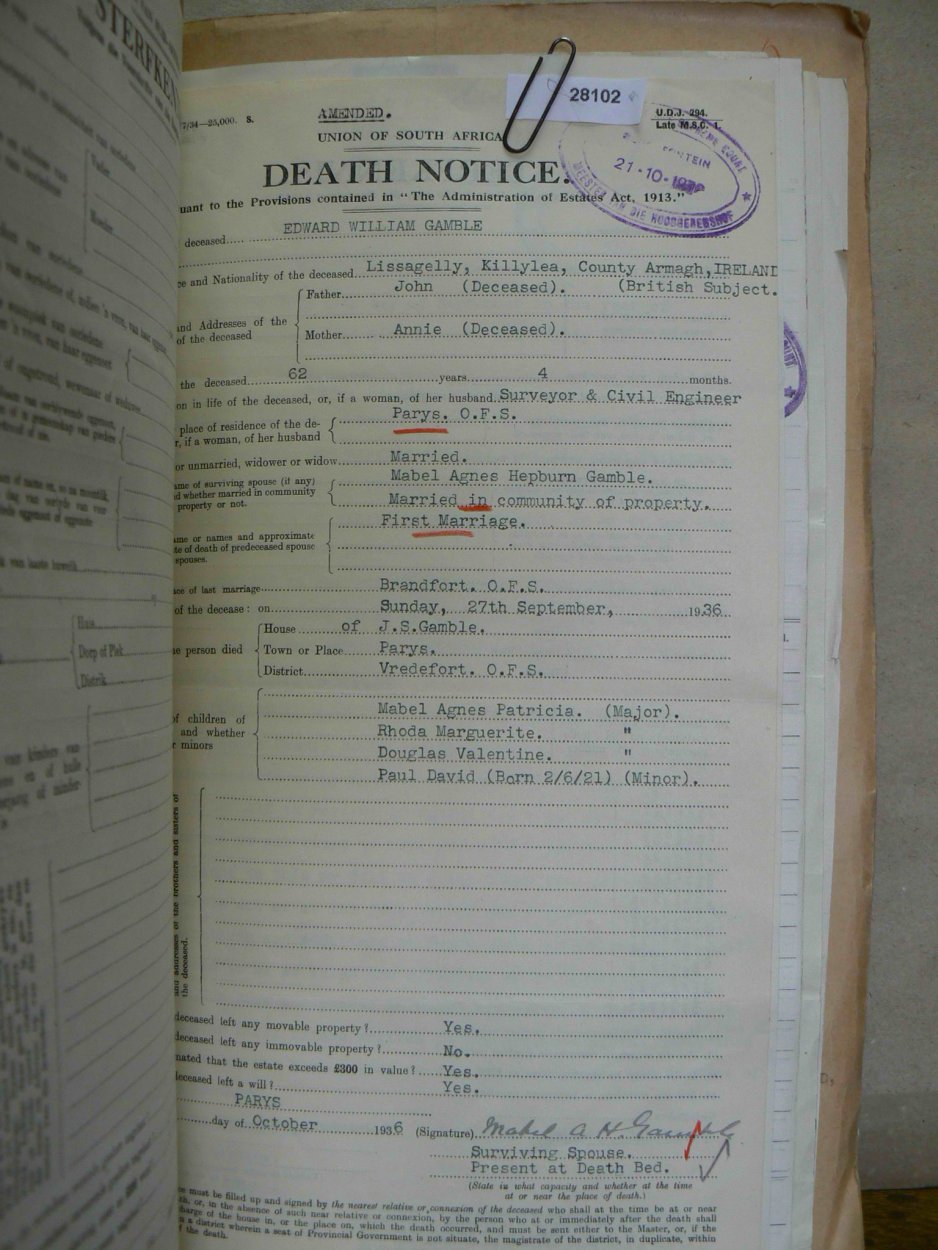 STERFKEN
28102
7/34—25,000. S.
AMENDED.
U.D.J. 294.
Late M.S.C. 1.
UNION OF SOUTH AFRICA
DEATH NOTICE.
21-10-
MEESTER VAN DIE HOOGGEREGSHOF
uant to the Provisions contained in "The Administration of Estates Act, 1913."
deceased EDWARD WILLIAM GAMBLE
ce and Nationality of the deceased Lissagelly, Killylea, County Armagh, IRELAND
Father John (Deceased). (British Subject.
and Addresses of the
of the deceased
Mother Annie (Deceased).
the deceased 62 years 4 months.
on in life of the deceased, or, if a woman, of her husband Surveyor & Civil Engineer
place of residence of the de-
r, if a woman, of her husband
Parys. O.F.S.
or unmarried, widower or widow Married.
ame of surviving spouse (if any)
d whether married in community
property or not.
Mabel Agnes Hepburn Gamble.
Married in community of property.
First Marriage.
me or names and approximate
te of death of predeceased spouse
spouses.
ace of last marriage Brandfort. O.F.S.
of the decease: on Sunday, 27th September, 1936
e person died
House of J.S.Gamble.
Town or Place Parys.
District Vredefort. O.F.S.
of children of
and whether
r minors
Mabel Agnes Patricia. (Major).
Rhoda Marguerite. "
Douglas Valentine. "
Paul David (Born 2/6/21) (Minor).
and addresses of the brothers and sisters of
the deceased.
deceased left any movable property? Yes.
deceased left any immovable property? No.
nated that the estate exceeds £300 in value? Yes.
deceased left a will? Yes.
PARYS
day of October 1936 (Signature) Mabel A H. Gamble
Surviving Spouse.
Present at Death Bed.
(State in what capacity and whether at the time
at or near the place of death.)
ce must be filled up and signed by the nearest relative or connexion of the deceased who shall at the time be at or near
th, or, in the absence of such near relative or connexion, by the person who at or immediately after the death shall
harge of the house in, or the place on, which the death occurred, and must be sent either to the Master, or, if the
n a district wherein a seat of Provincial Government is not situate, the magistrate of the district, in duplicate, within
f the death.
Hus
Dorp of Plek
Distrik